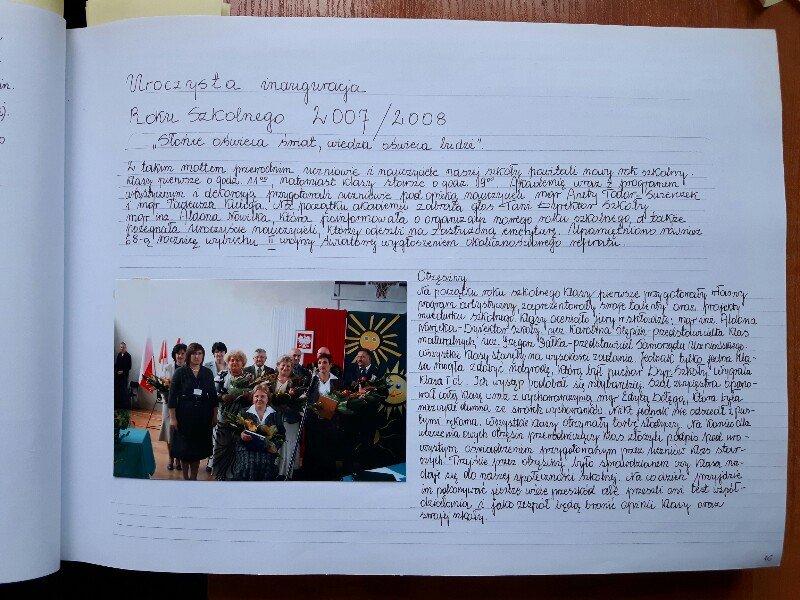 Uroczysta inauguracja
Roku Szkolnego 2007/2008
„Słońce oświeca świat, wiedza oświeca ludzi".
Z takim mottem przewodnim uczniowie i nauczyciele naszej szkoły powitali nowy rok szkolny.
Klasy pierwsze o godz. 11⁰⁰, natomiast klasy starsze o godz. 9⁰⁰. Akademię wraz z programem
artystycznym i dekoracją przygotowali uczniowie pod opieką nauczycieli mgr Anety
i mgr Tadeusza. Na początku akademii zabrała głos Pani Dyrektor Szkoły
mgr inż. Aldona Nowicka, która poinformowała o organizacji nowego roku szkolnego, a także
pożegnała uroczyście nauczycieli, którzy odeszli na zasłużoną emeryturę. Upamiętniono również
68-ą rocznicę wybuchu II wojny światowej wygłoszeniem okolicznościowego referatu.
Otrzęsiny
Na początku roku szkolnego klasy pierwsze przygotowały własny
program artystyczny, zaprezentowały swoje talenty oraz projekty
mundurku szkolnego. Klasy oceniało jury w składzie: mgr inż. Aldona
Nowicka - Dyrektor Szkoły, ucz. Karolina - przedstawicielka klas
maturalnych, ucz. Grzegorz Gałka - przedstawiciel Samorządu Uczniowskiego.
Wszystkie klasy stanęły na wysokości zadania. Jednak tylko jedna kla-
sa mogła zdobyć nagrodę, którą był puchar Dyr. Szkoły, wygrała
klasa I d. Ich występ podobał się najbardziej. Szał zwycięstwa opano-
wał całą klasę wraz z wychowawczynią mgr Edytą, która była
niezwykle dumna ze swoich wychowanków. Nikt jednak nie odszedł z pus-
tymi rękoma, wszystkie klasy otrzymały torbę słodyczy. Na koniec dla
uwieńczenia owych otrzęsin przewodniczący klas złożyli podpis pod uro-
czystym oświadczeniem przygotowanym przez uczniów klas star-
szych. Przyjście przez otrzęsiny było sprawdzianem czy klasa na-
daje się do naszej społeczności szkolnej. Na co dzień przyjdzie
im pokonywać jeszcze wiele przeszkód ale przeszli oni test współ-
działania i jako zespół będą bronić opinii klasy oraz
swojej szkoły.